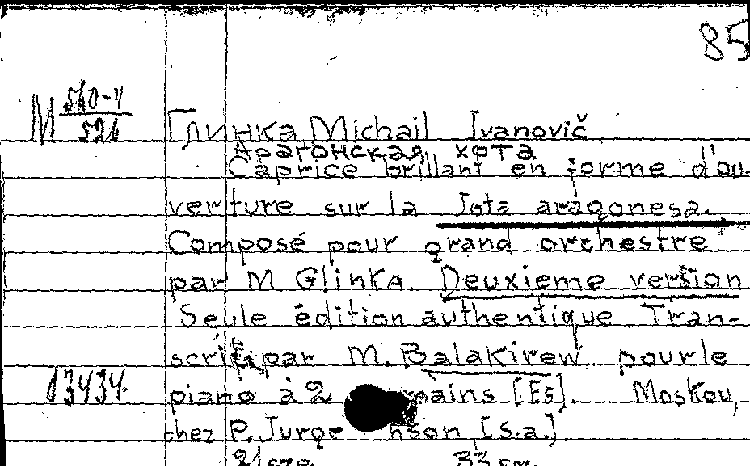 85
М 560-4
526
Глинка Michail Ivanovič
Арагонская хота
Caprice brillant en forme d'ou-
verture sur la Jota aragonesa.
Composé pour grand orchestre
par M. Glinka. Deuxieme version
Seule édition authentique Tran-
scrit par M. Balakirew pour le
13434
piano à 2 mains [Es]. Moskou,
chez P. Jurgenson [S.a.]
21 стр. 33 см.